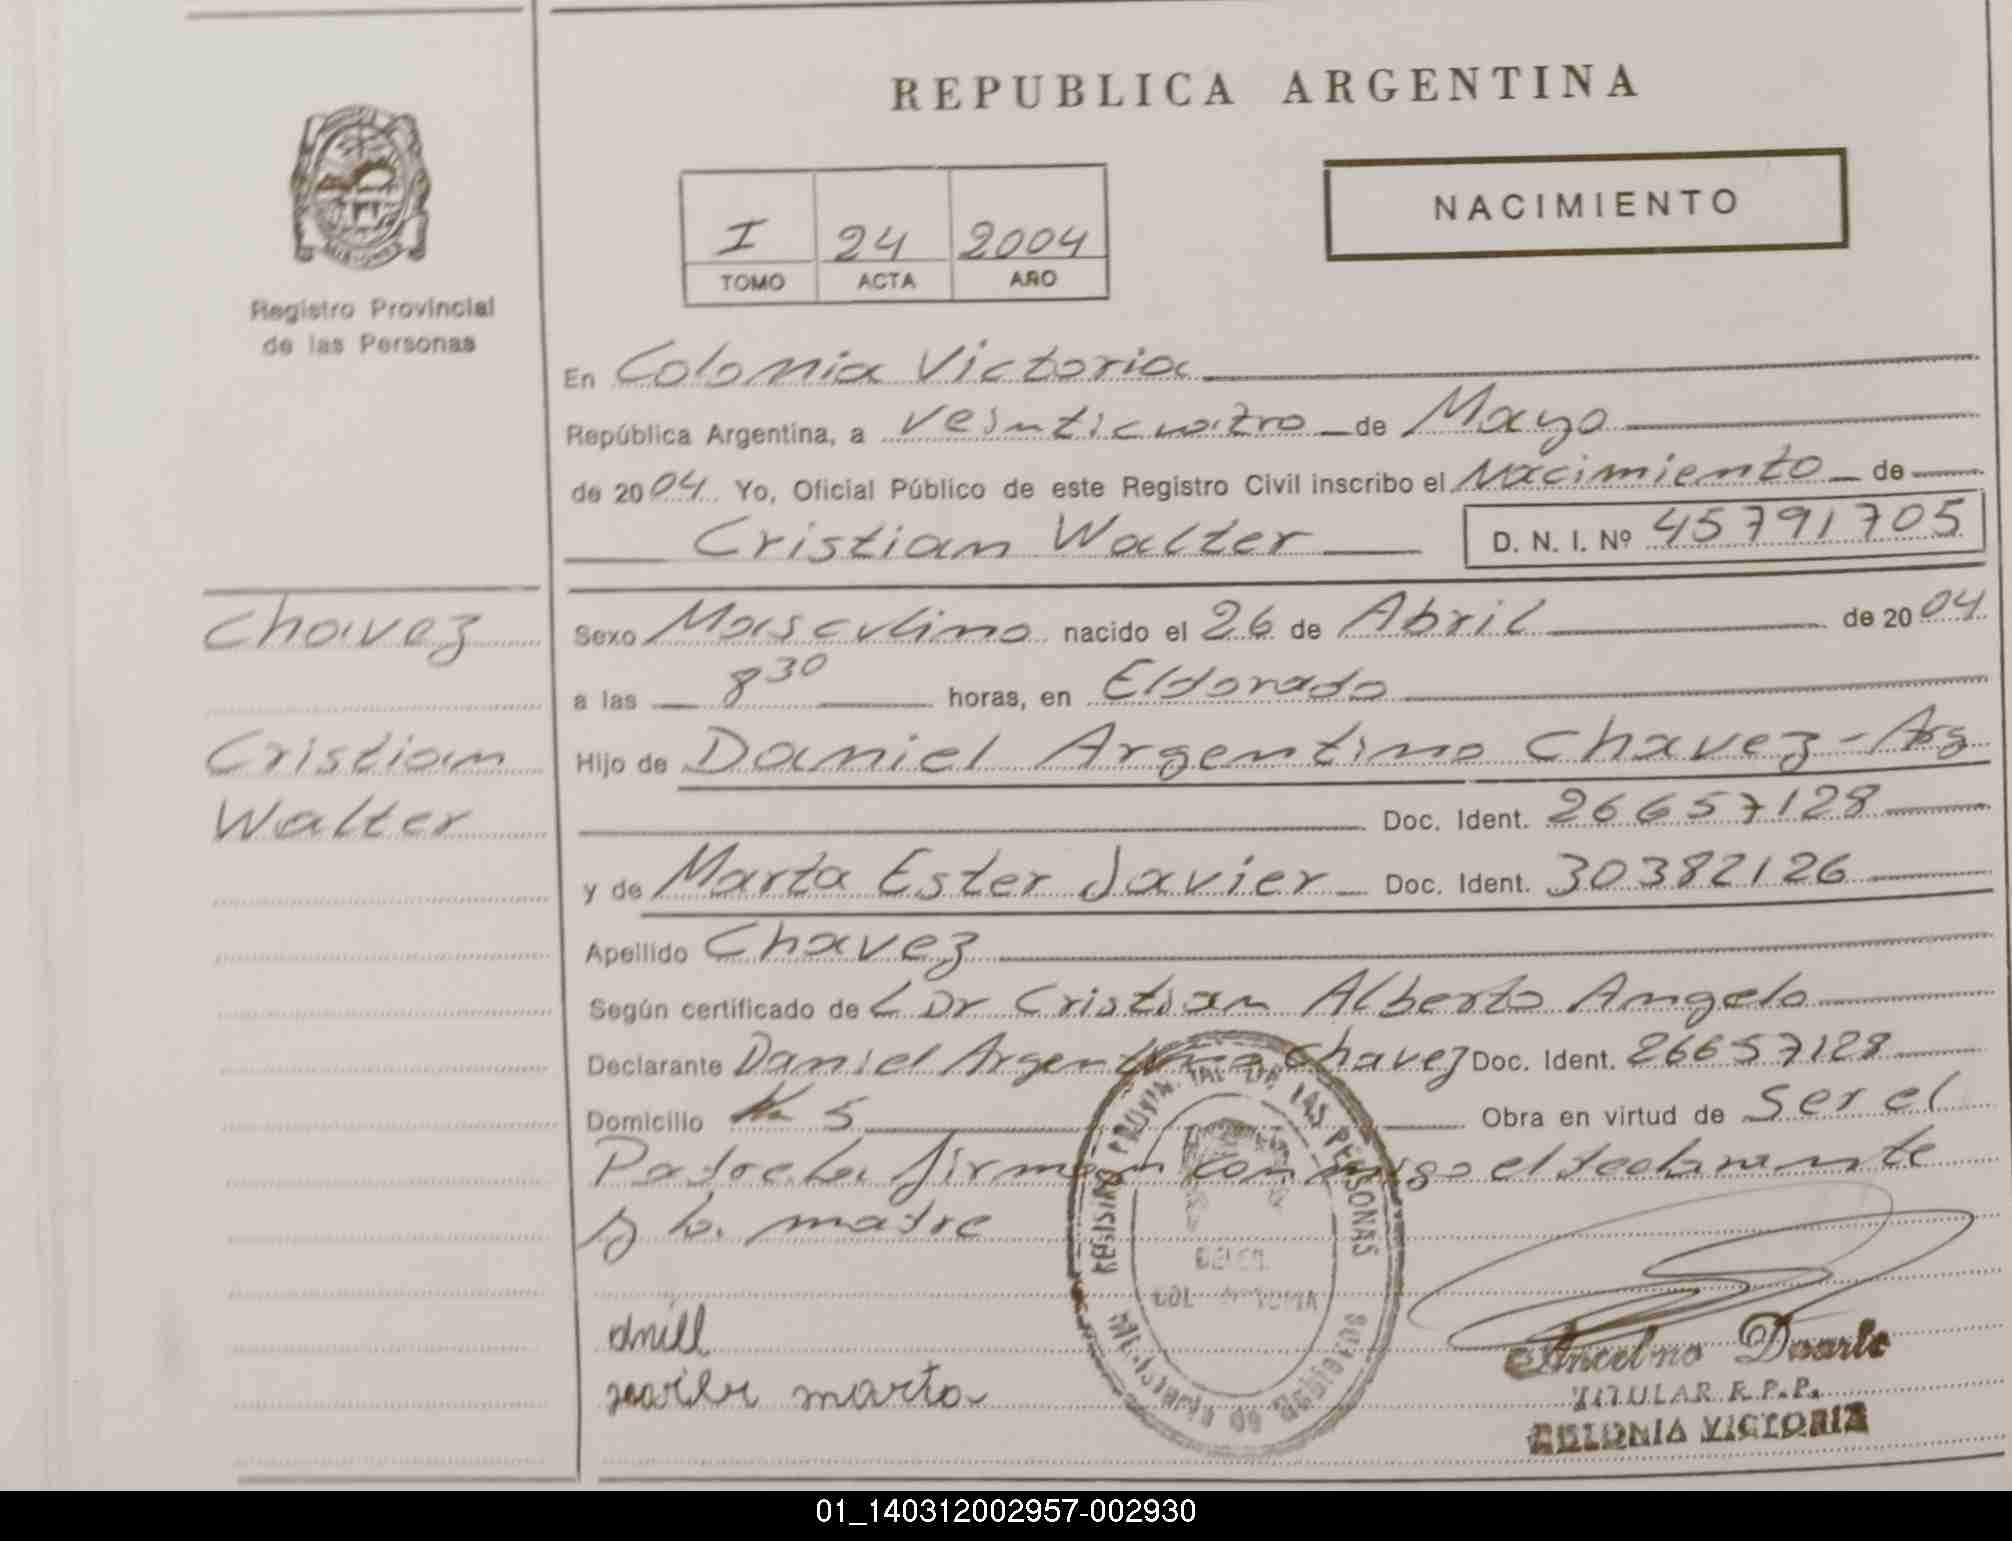 REPUBLICA ARGENTINA
NACIMIENTO
I 24 2004
TOMO ACTA AÑO
Registro Provincial
de las Personas
En Colonia Victoria
República Argentina, a veinticuatro de Mayo
de 2004 Yo, Oficial Público de este Registro Civil inscribo el Nacimiento de
Cristian Walter D. N. I. Nº 45791705
Chavez
Cristian
Walter
Sexo Masculino nacido el 26 de Abril de 2004
a las 8 30 horas, en Eldorado
Hijo de Daniel Argentino Chavez - Arg
Doc. Ident. 26657128
y de Marta Ester Javier Doc. Ident. 30382126
Apellido Chavez
Según certificado de L Dr Cristian Alberto Angelo
Declarante Daniel Argentino Chavez Doc. Ident. 26657128
Domicilio K 5 Obra en virtud de ser el
Padre La firman conmigo el declarante
y la madre
REGISTRO PROVINCIAL DE LAS PERSONAS
COL VICTORIA
marta
Ancelmo Duarte
TITULAR R.P.P.
COLONIA VICTORIA
01_140312002957-002930